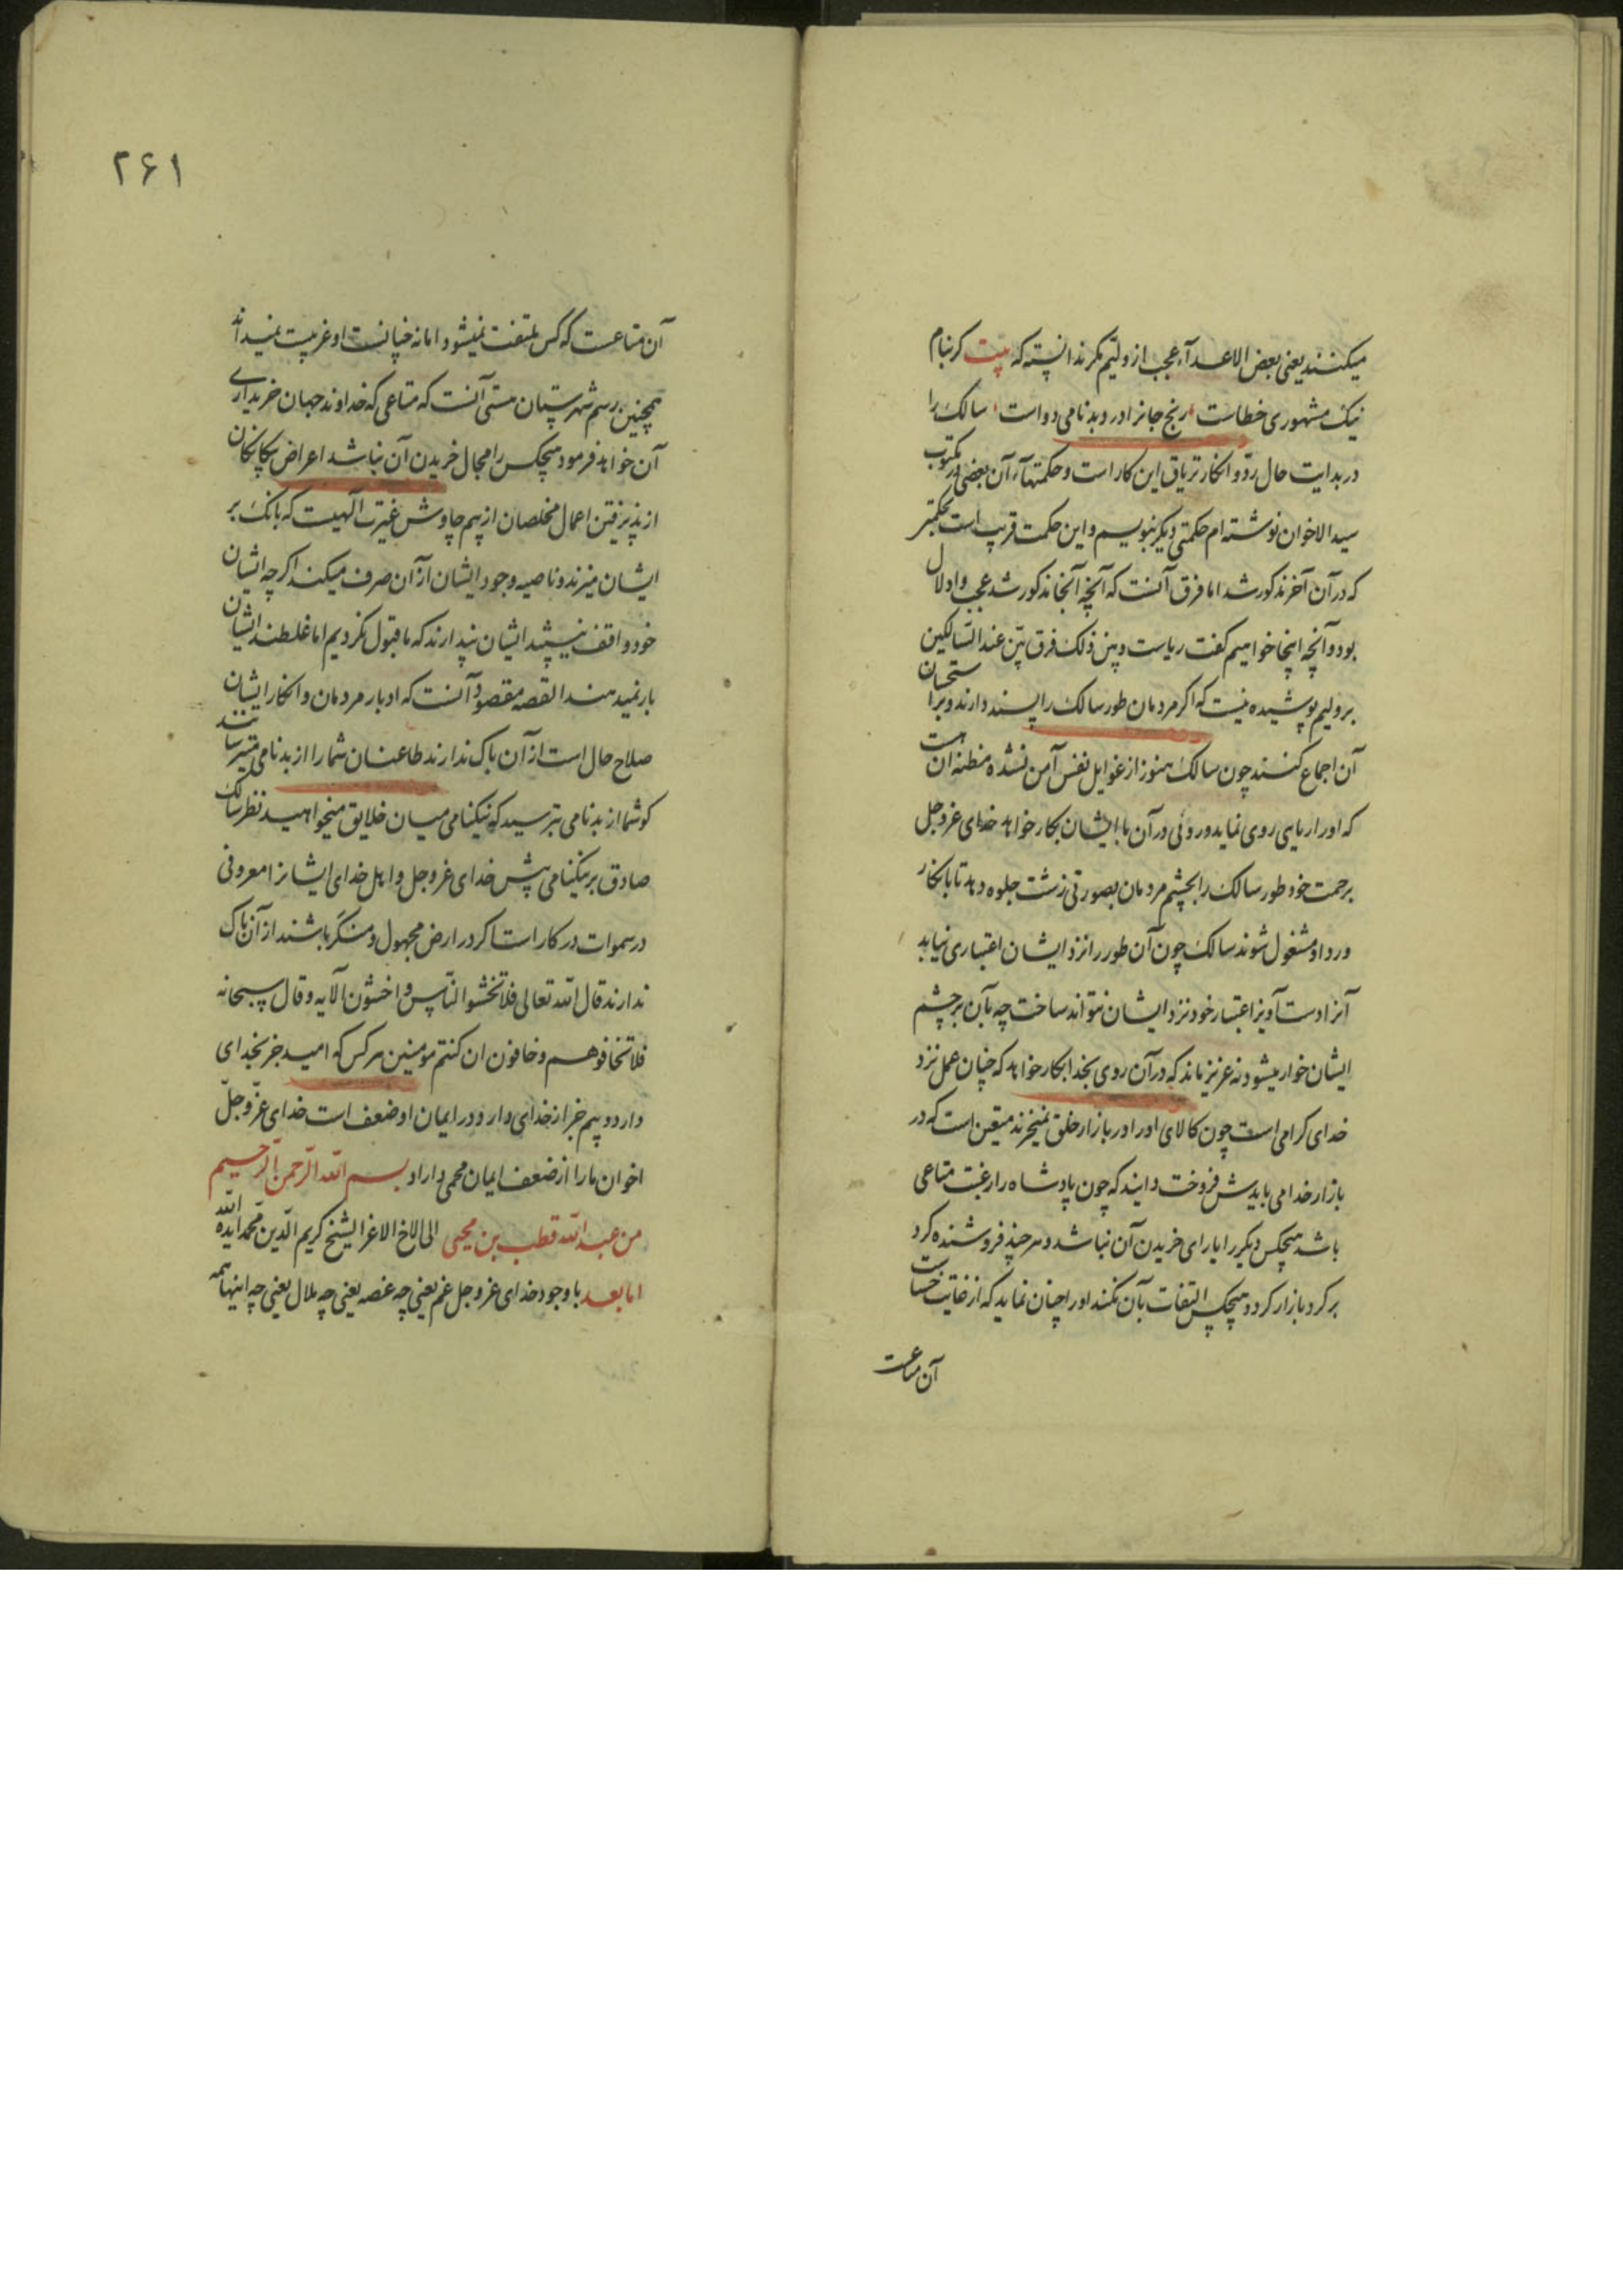 میکنند یعنی بعض الاعدآء عجب از ولیّم مکر ندانسته که بیت کر بنام
نیک مشهوری خطاست رنج جانرا درد بدنامی دواست سالک را
در بدایت حال ردّ و انکار تریاق این کار است و حکمتهآء آن بعضی در مکتوب
سید الاخوان نوشته‌ام حکمتی دیکر بنویسم و این حکمت قریب است بحکمتی
که در آن آخر مذکور شد اما فرق آنست که آنچه آنجا مذکور شد عجب و ادلال
بود و آنچه اینجا خواهیم کفت ریاست و بین ذلک فرق بیّن عند السّالکین
بر ولیم پوشیده نیست که اکر مردمان طور سالک را پسند دارند و بر استحسان
آن اجماع کنند چون سالک هنوز از غوایل نفس آمن نشده مظنه آن هست
که او را ریایی روی نماید و روئی در آن با ایشان بکار خواهد خدای عزوجل
برحمت خود طور سالک را بچشم مردمان بصورتی زشت جلوه دهد تا بانکار
و رد او مشغول شوند سالک چون آن طور را نزد ایشان اعتباری نیابد
آنرا دست آویز اعتبار خود نزد ایشان نتواند ساخت چه بآن بر چشم
ایشان خوار میشود نه عزیز ماند که در آن روی بخدا بکار خواهد که چنان عمل نزد
خدای کرامی است چون کالای او را در بازار خلق نمیخرند متیقن است که در
بازار خدا می بایدش فروخت و ایند که چون پادشاه را رغبت متاعی
باشد هیچکس دیکر را یارای خریدن آن نباشد و هر چند فروشنده کرد
بر کرد بازار کردد هیچکس التفات بآن نکند او را چنان نماید که از غایت خساست
آن متاعست
۲۶۱
آن متاعست که کس ملتفت نمیشود اما نه چنانست او غریبست نمیداند
همچنین رسم شهرستان هستی آنست که متاعی که خداوند جهان خریداری
آن خواهد فرمود هیچکس را مجال خریدن آن نباشد اعراض بیکانکان
از پذیرفتن اعمال مخلصان از بیم چاوش غیرت آلهیست که بانک بر
ایشان میزند و ناصیه وجود ایشان از آن صرف میکند اکر چه ایشان
خود واقف نیستند ایشان پندارند که ما قبول نکردیم اما غلطند ایشان را
بار نمیدهند القصه مقصود آنست که ادبار مردمان و انکار ایشان
صلاح حال است از آن باک ندارند طاعنان شما را از بدنامی میترسانند
کو شما از بدنامی بترسید که نیکنامی میان خلایق میخواهید نظر سالک
صادق بر نیکنامی پیش خدای عزوجل و اهل خدای ایشانرا معروفی
در سموات در کار است اکر در ارض مجهول و منکر باشند از آن باک
ندارند قال الله تعالی فلا تخشوا النّاس و اخشون الآیه و قال سبحانه
فلا تخافوهم و خافون ان کنتم مومنین هر کس که امید جز بخدای
دارد و بیم جز از خدای دارد در ایمان او ضعف است خدای عزّوجلّ
اخوان ما را از ضعف ایمان محمی داراد بسم الله الرّحمن الرّحیم
من عبد الله قطب بن محیی الی الاخ الاعز الشیخ کریم الدّین محمد ایده الله
اما بعد با وجود خدای عزوجل غم یعنی چه غصه یعنی چه ملال یعنی چه اینها همه